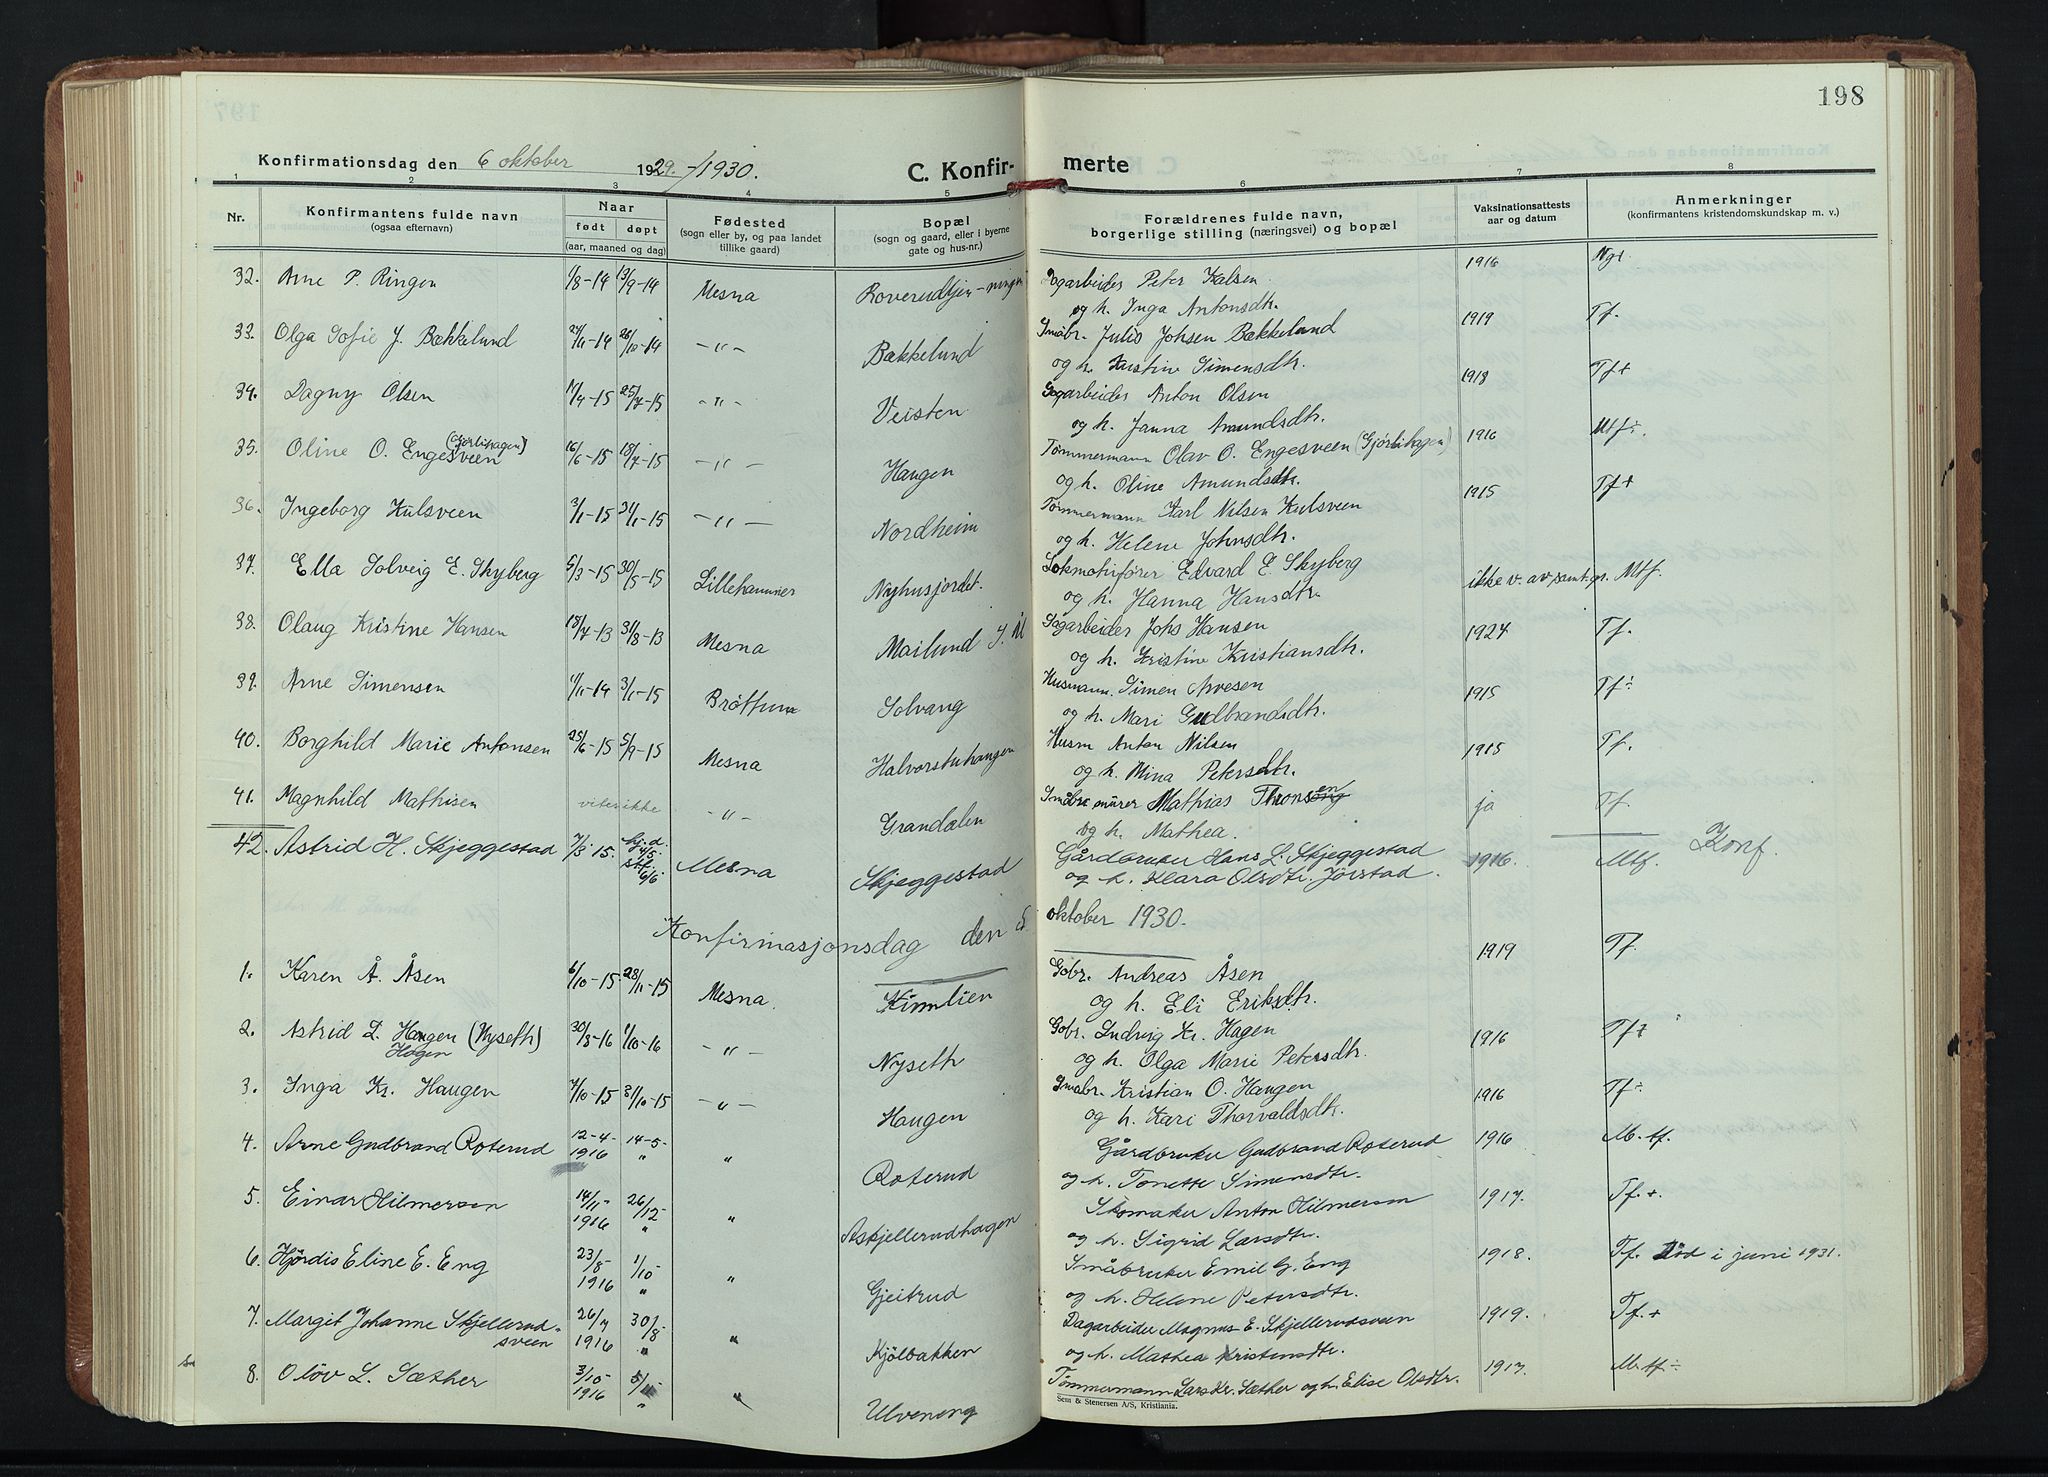 198
Konfirmationsdag den 6 oktober 1929./1930.
C. Konfirmerte
1 2 3 4 5 6 7 8
Nr. Konfirmantens fulde navn (ogsaa efternavn) Naar født døpt (aar, maaned og dag) Fødested (sogn eller by, og paa landet tillike gaard) Bopæl (sogn og gaard, eller i byerne gate og hus-nr.) Forældrenes fulde navn, borgerlige stilling (næringsvei) og bopæl Vaksinationsattests aar og datum Anmerkninger (konfirmantens kristendomskundskap m. v.)
32. Arne P. Ringen 1/8-14 13/9-14 Mesna Peter Kalsen 1916 Ngt.
og h. Inga Antonsdtr.
33. Olga Sofie J. Bækkelund 24/11-14 26/10-14 -"- Bækkelund Småbr. Julis Johsen Bækkelund 1919 Tf.
og h. Kristine Simensdtr.
34. Dagny Olsen 17/4-15 25/7-15 -"- Veisten Anton Olsen 1918 Tf+
og h. Janna Amundsdtr.
35. Oline O. Engesveen (Gjørlihagen) 16/6-15 18/7-15 -"- Haugen Tømmermann Olav O. Engesveen (Gjørlihagen) 1916 Mtf÷.
og h. Oline Amundsdtr.
36. Ingeborg Kulsveen 3/1-15 24/1-15 -"- Nordheim Tømmermann Karl Nilsen Kulsveen 1915 Tf+
og h. Helene Johnsdtr.
37. Ella Solveig E. Skyberg 5/3-15 30/5-15 Lillehammer Nyhusjordet. Lokmotivfører Edvard E. Skyberg ikke v. av samt.gr. Mtf.
og h. Hanna Hansdtr.
38. Olaug Kristine Hansen 18/7-13 31/8-13 Mesna Mailund S. M Sagarbeider Johs Hansen 1924 Tf.
og h. Kristine Kristiansdtr.
39. Arne Simensen 1/11-14 3/1-15 Brøttum Solvang Husmann. Simen Arvesen 1915 Tf÷
og h. Mari Gudbrandsdtr.
40. Borghild Marie Antonsen 25/6-15 5/9-15 Mesna Halvorstuhaugen Husm Anton Nilsen 1915 Tf.
og h. Mina Petersdtr.
41. Magnhild Mathisen vites ikke -"- Grandalen Småbr. murer Mathias Thronsen ja Tf.
og h. Mathea.
42. Astrid H. Skjeggestad 7/3-15. hj.d. 4/5 stf. 6/6 Mesna Skjeggestad Gårdbruker Hans L. Skjeggestad 1916. Mtf. Konf.
og h. Klara Olsdtr. Jørstad.
Konfirmasjonsdag den 5 oktober 1930.
1. Karen Å. Åsen 6/10-15. 28/11-15 Mesna. Kinnlien Gbr. Andreas Åsen 1919 Tf.
og h. Eli Eriksdtr.
2. Astrid L. Haugen (Nyseth) 30/8-16 1/10-16 -"- Nyseth Gbr. Ludvig Kr. Hagen 1916 Tf÷
Hagen og h. Olga Marie Petersdtr.
3. Inga Kr. Haugen 7/10-15 31/10-15 -"- Haugen Småbr. Kristian O. Haugen 1916 Tf÷
og h. Kari Thorvaldsdtr.
4. Arne Gudbrand Roterud 12-4-1916 14-5-" " Roterud Gårdbruker Gudbrand Roterud 1916 M.tf.
og h. Tonette Simensdtr.
5. Einar Hilmersen 14/11-1916 26/12-" " Askjellerudhagen Skomaker Anton Hilmersen 1917. Tf.+.
og h. Sigrid Larsdtr.
6. Hjørdis Eline E. Eng 23/8-1916 1/10-" " Gjeitrud Småbruker Emil G. Eng 1918. Tf. Død i juni 1931.
og h. Helene Petersdtr.
7. Margit Johanne Skjellerud-sveen 26/7 1916 30/8-" " Kjølbakken Dagarbeider Magnus E. Skjellerudsveen 1919. Tf.+
og h. Mathea Kristensdtr.
8. Oløv L. Sæther 3/10-1916 5/11-" " Ulveneng Tømmermann Lars Kr. Sæther og h. Elise Olsdtr. 1917. M.tf÷
Sem & Stenersen A/S, Kristiania.